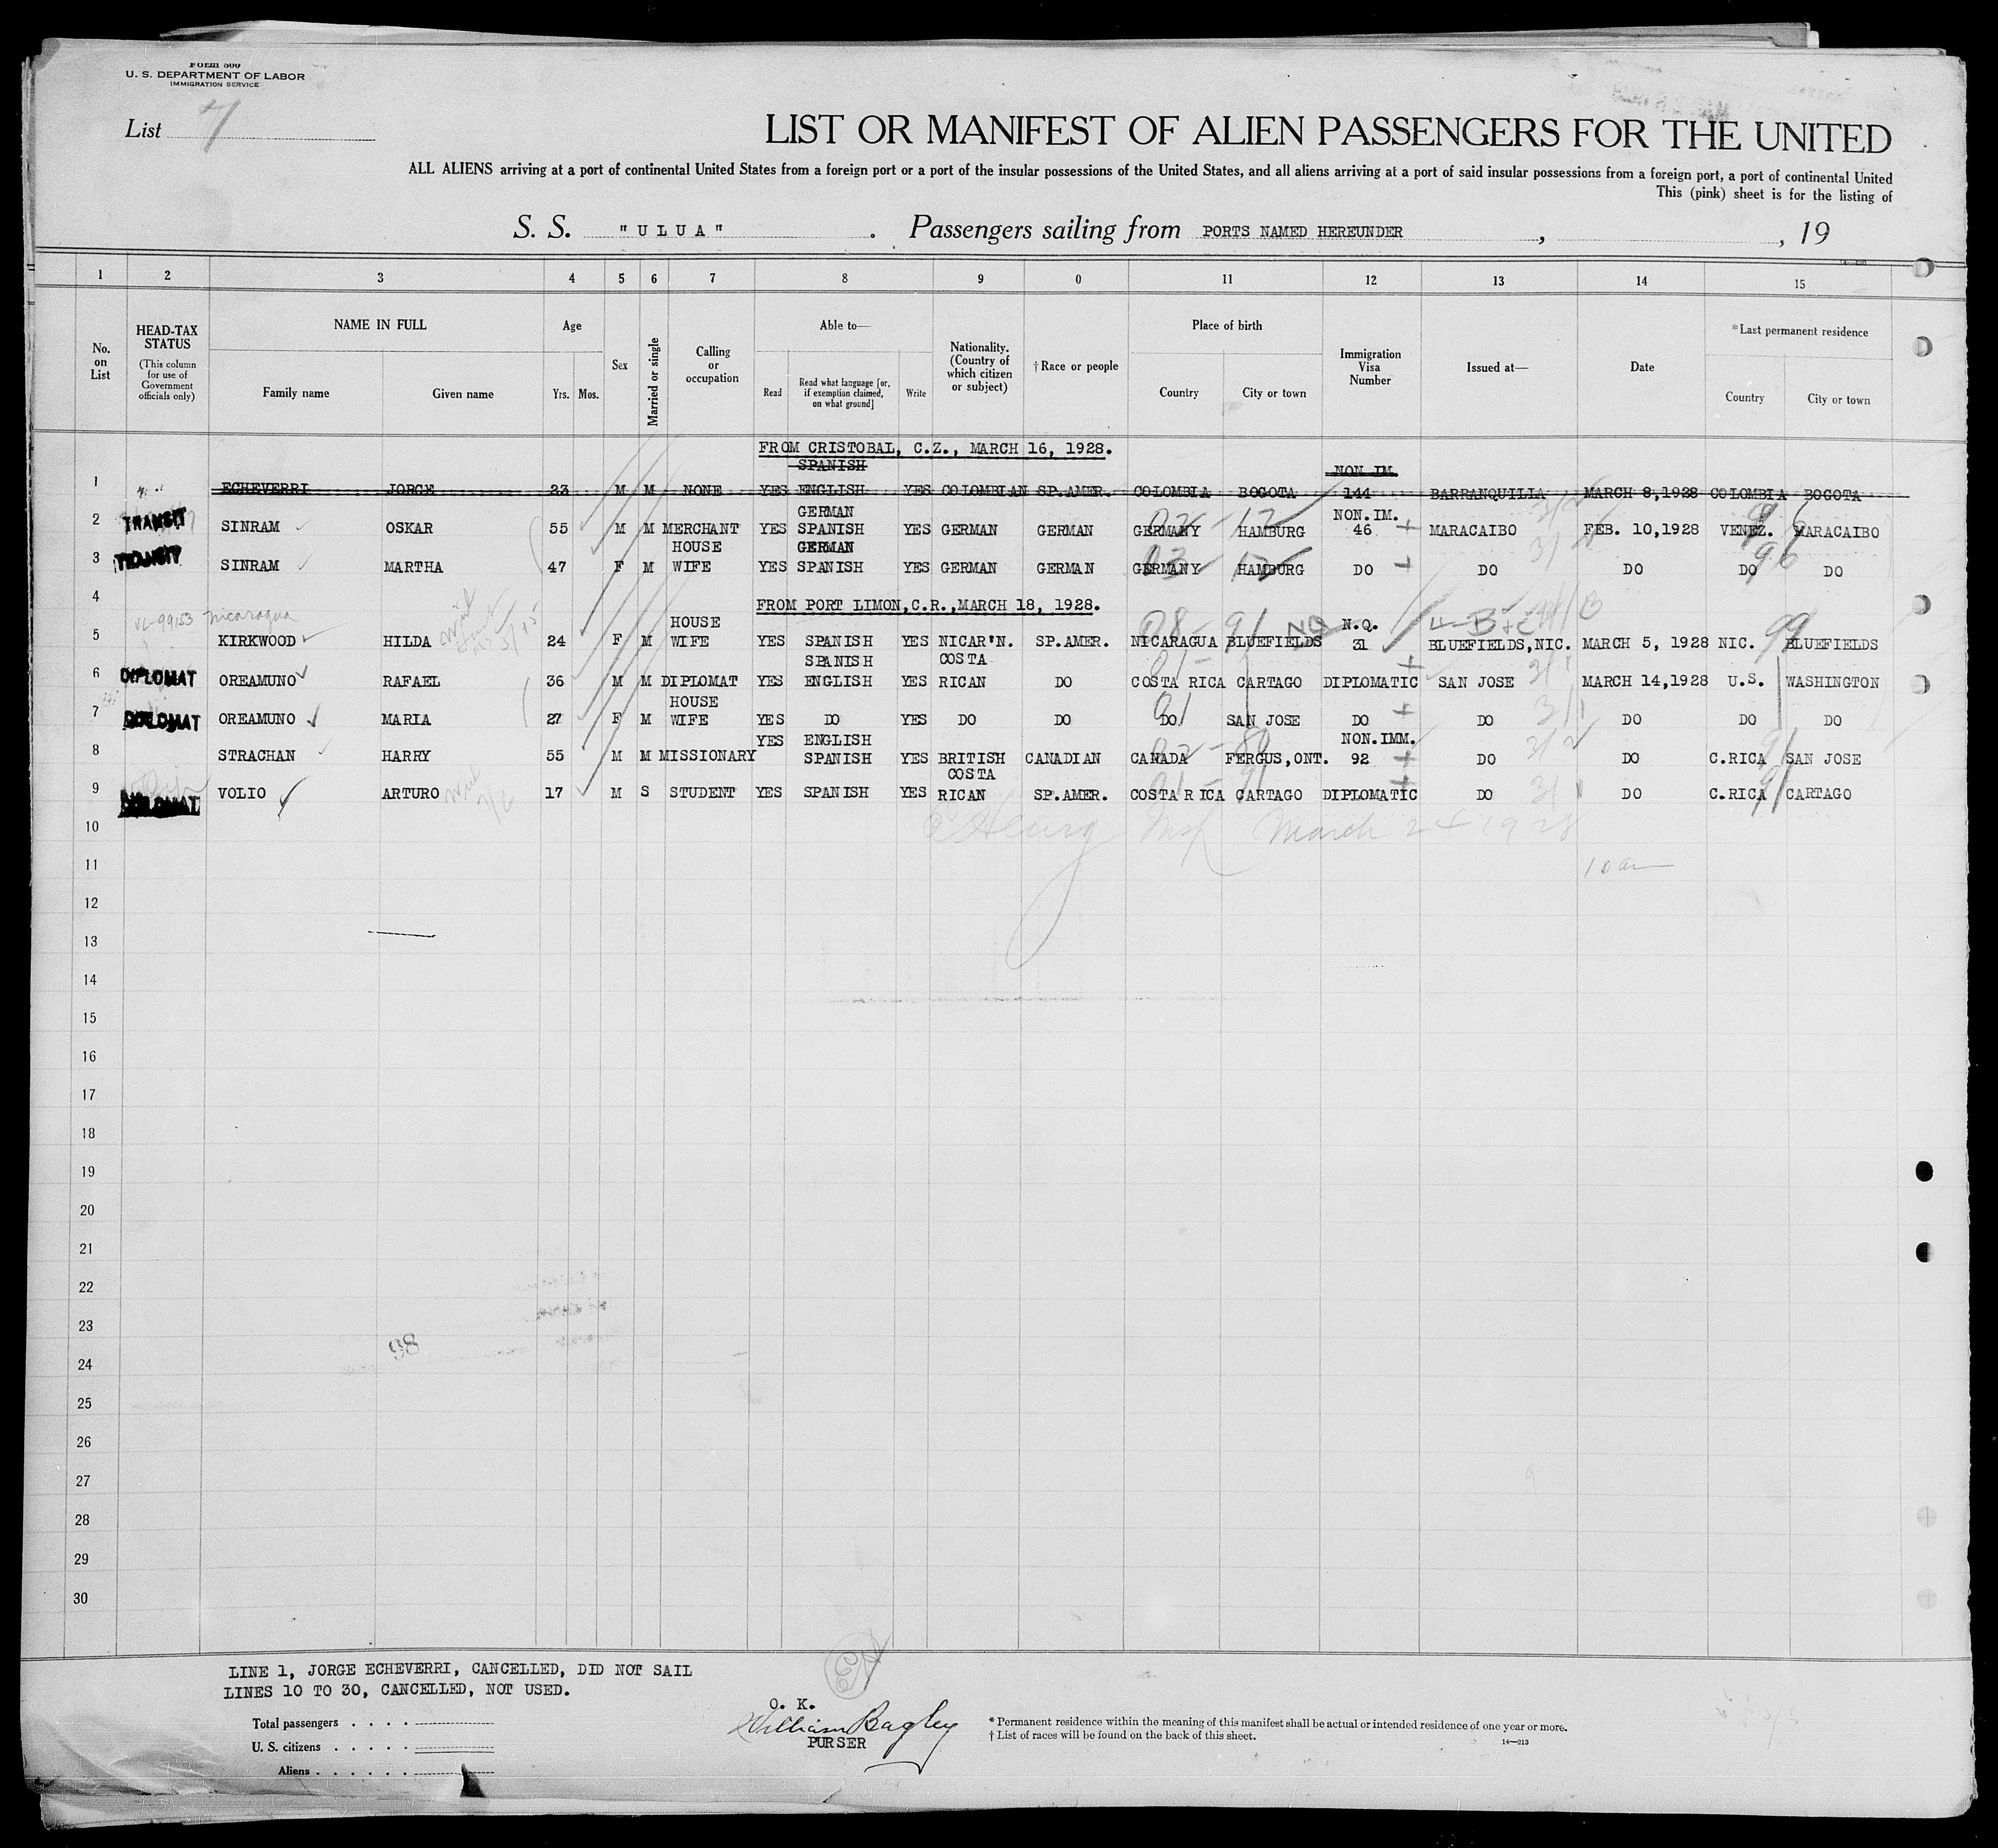 Form 500
U. S. DEPARTMENT OF LABOR
IMMIGRATION SERVICE
List
LIST OR MANIFEST OF ALIEN PASSENGERS FOR THE UNITED
ALL ALIENS arriving at a port of continental United States from a foreign port or a port of the insular possessions of the United States, and all aliens arriving at a port of said insular possessions from a foreign port, a port of continental United
This (pink) sheet is for the listing of
S. S. "ULUA" . Passengers sailing from PORTS NAMED HEREUNDER , , 19
1 2 3 4 5 6 7 8 9 0 11 12 13 14 15
No. on List
HEAD-TAX STATUS (This column for use of Government officials only)
NAME IN FULL Family name Given name
Age Yrs. Mos.
Sex
Married or single
Calling or occupation
Able to— Read Read what language [or, if exemption claimed, on what ground] Write
Nationality. (Country of which citizen or subject)
†Race or people
Place of birth Country City or town
Immigration Visa Number
Issued at—
Date
*Last permanent residence Country City or town
FROM CRISTOBAL, C.Z., MARCH 16, 1928.
SPANISH NON IM.
1 ECHEVERRI JORGE 23 M M NONE YES ENGLISH YES COLOMBIAN SP.AMER. COLOMBIA BOGOTA 144 BARRANQUILLA MARCH 8,1928 COLOMBIA BOGOTA
GERMAN NON.IM.
2 TRANSIT SINRAM OSKAR 55 M M MERCHANT YES SPANISH YES GERMAN GERMAN GERMANY HAMBURG 46 MARACAIBO FEB. 10,1928 VENEZ. MARACAIBO
HOUSE GERMAN
3 TRANSIT SINRAM MARTHA 47 F M WIFE YES SPANISH YES GERMAN GERMAN GERMANY HAMBURG DO DO DO DO DO
4 FROM PORT LIMON,C.R.,MARCH 18, 1928.
Nicaragua
HOUSE N.Q.
5 KIRKWOOD HILDA 24 F M WIFE YES SPANISH YES NICAR'N. SP.AMER. NICARAGUA BLUEFIELDS 31 BLUEFIELDS,NIC. MARCH 5, 1928 NIC. BLUEFIELDS
SPANISH COSTA
6 DIPLOMAT OREAMUNO RAFAEL 36 M M DIPLOMAT YES ENGLISH YES RICAN DO COSTA RICA CARTAGO DIPLOMATIC SAN JOSE MARCH 14,1928 U.S. WASHINGTON
HOUSE
7 DIPLOMAT OREAMUNO MARIA 27 F M WIFE YES DO YES DO DO DO SAN JOSE DO DO DO DO DO
YES ENGLISH NON.IMM.
8 STRACHAN HARRY 55 M M MISSIONARY SPANISH YES BRITISH CANADIAN CANADA FERGUS,ONT. 92 DO DO C.RICA SAN JOSE
COSTA
9 DIPLOMAT VOLIO ARTURO 17 M S STUDENT YES SPANISH YES RICAN SP.AMER. COSTA RICA CARTAGO DIPLOMATIC DO DO C.RICA CARTAGO
10 March 24 1928
11
12
13
14
15
16
17
18
19
20
21
22
23
98
24
25
26
27
28
29
30
LINE 1, JORGE ECHEVERRI, CANCELLED, DID NOT SAIL
LINES 10 TO 30, CANCELLED, NOT USED.
Total passengers . . . .
U. S. citizens . . . . .
Aliens . . . . . .
O. K.
William Bagley
PURSER
* Permanent residence within the meaning of this manifest shall be actual or intended residence of one year or more.
† List of races will be found on the back of this sheet.
14—213